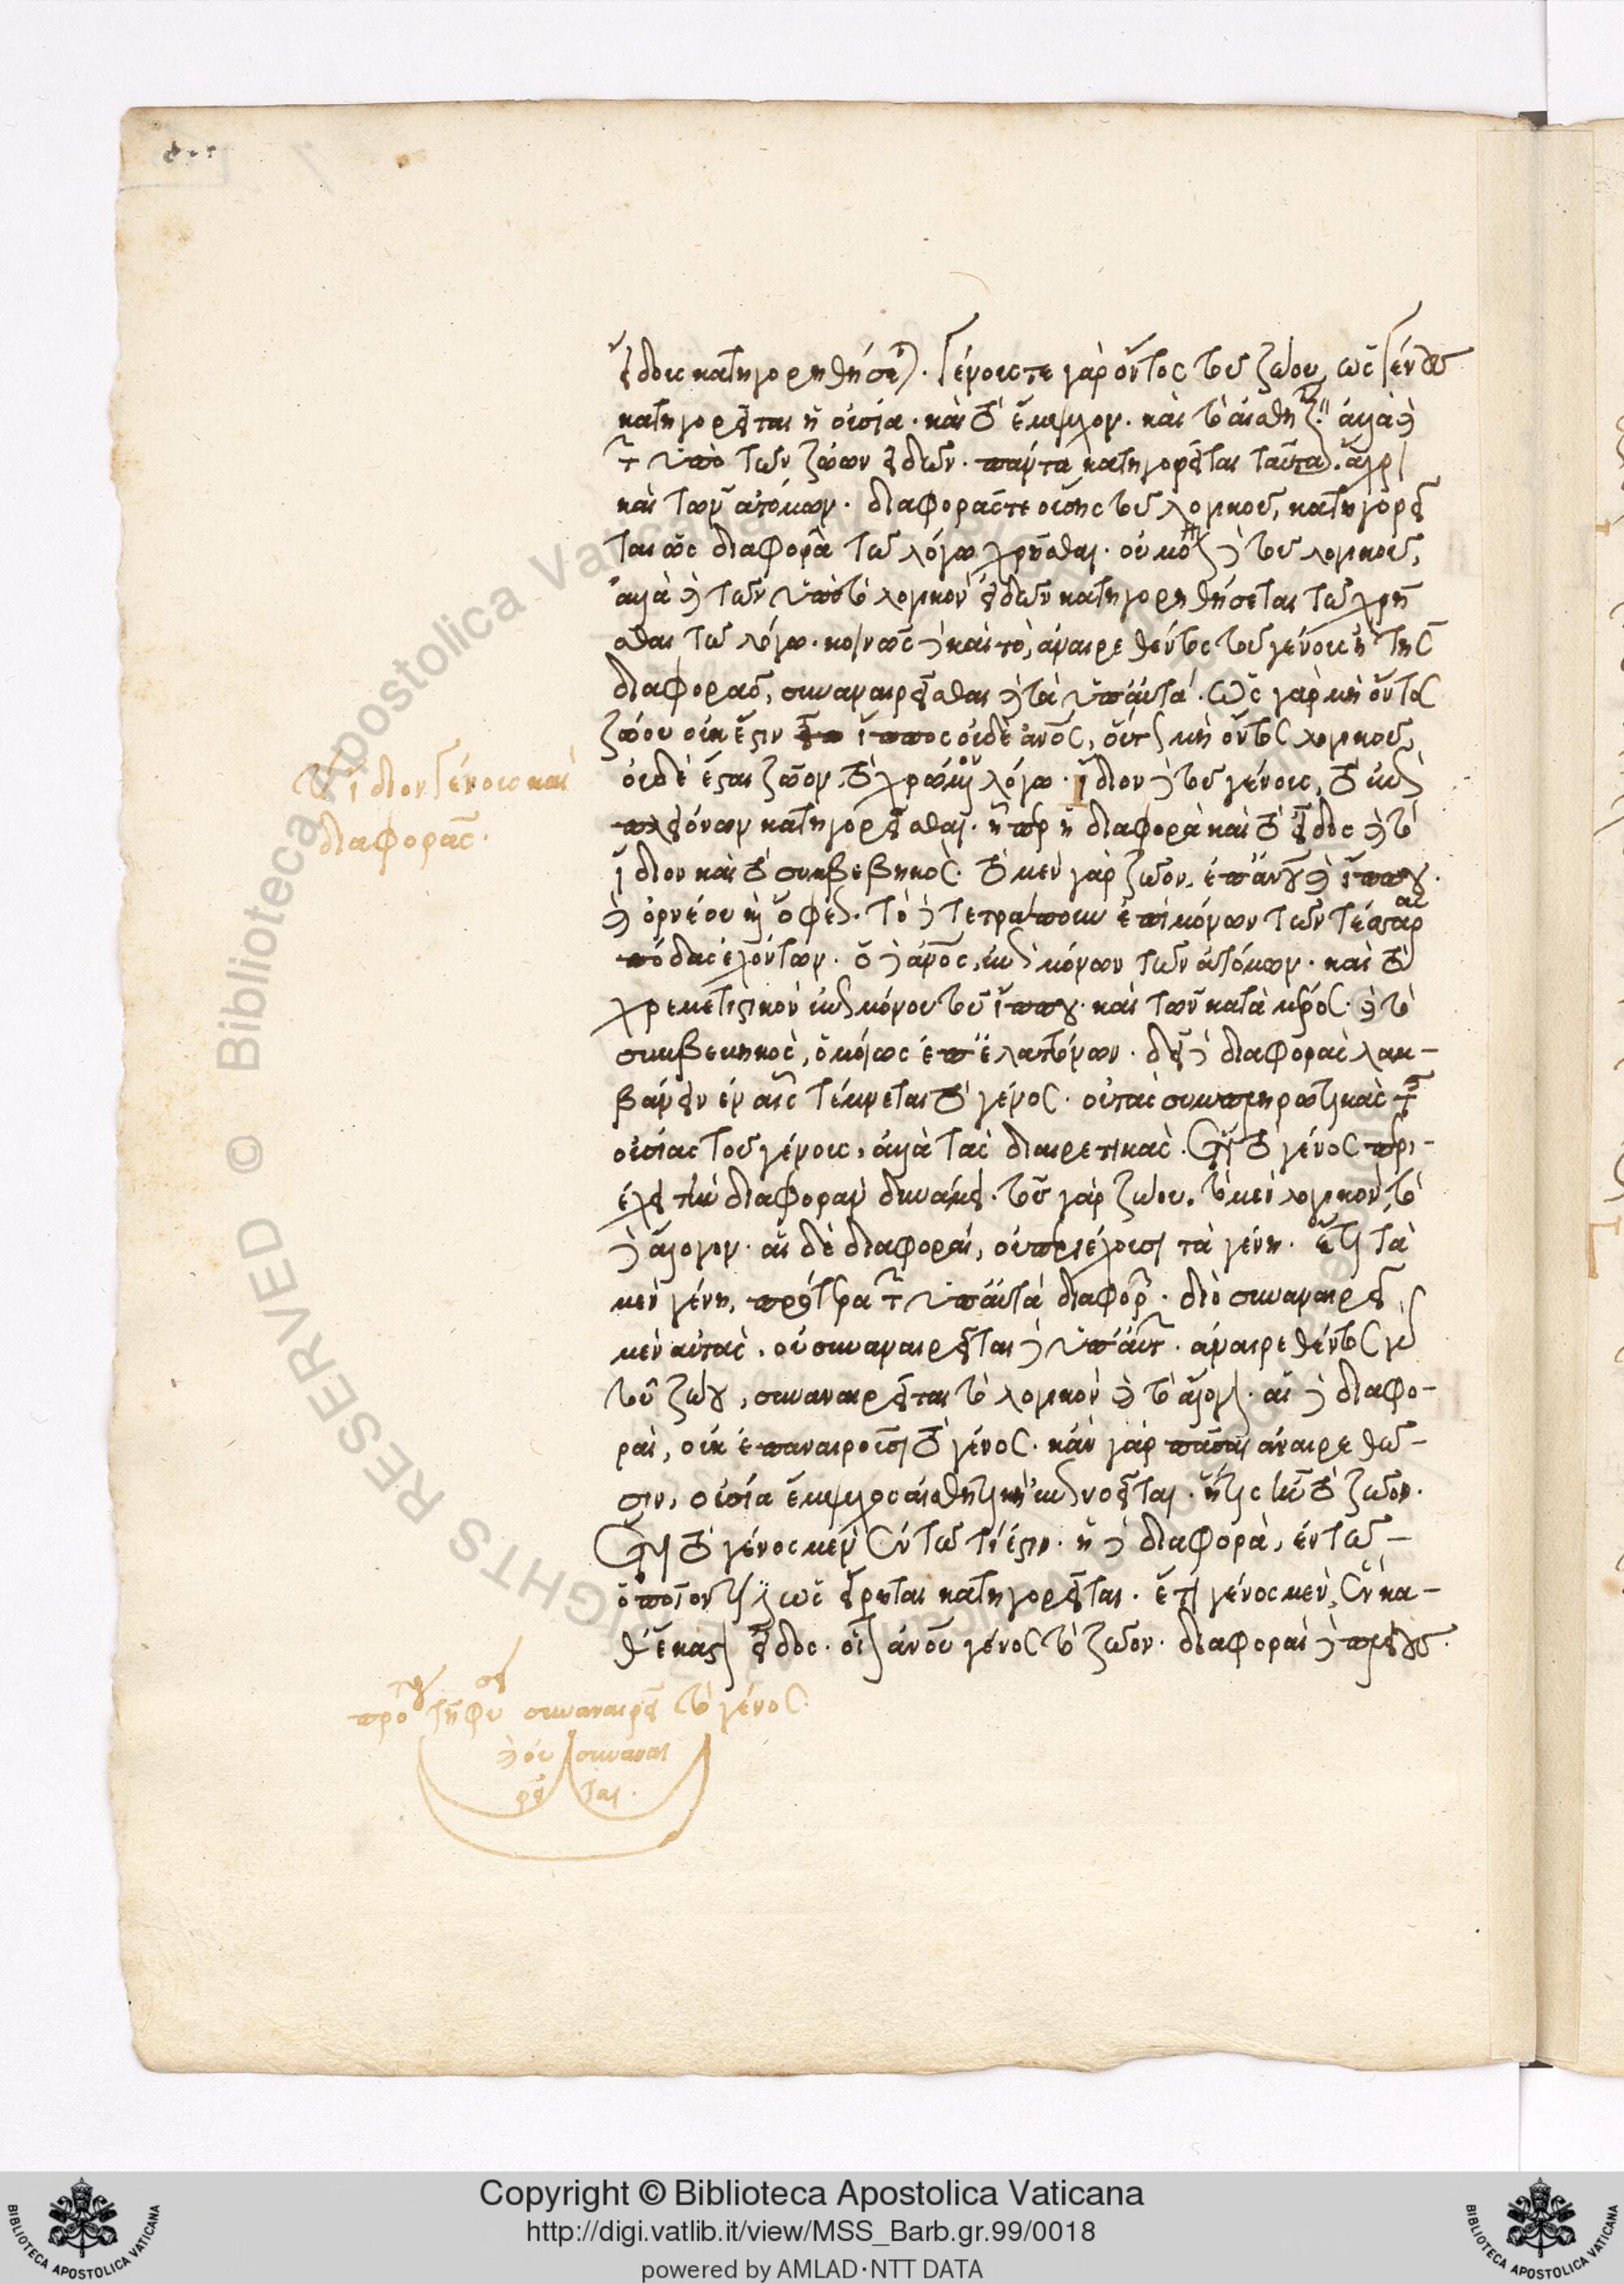 εἴδους κατηγορηθήσεται. γένους τε γὰρ ὄντος τοῦ ζώου, ὡς γένους
κατηγορεῖται ἡ οὐσία· καὶ τὸ ἔμψυχον· καὶ τὸ αἰσθητικόν· ἀλλὰ καὶ
τῶν ὑπὸ τῶν ζώων εἰδῶν· πάντα κατηγορεῖται ταῦτα. ἄχρι
καὶ τῶν ἀτόμων· διαφορᾶς τε οὔσης τοῦ λογικοῦ, κατηγορεῖ
ται ὡς διαφορὰ τὸ λόγω χρῆσθαι· οὐ μόνον δὲ τοῦ λογικοῦ,
ἀλλὰ καὶ τῶν ὑπὸ τὸ λογικὸν εἰδῶν κατηγορηθήσεται τὸ χρῆ
σθαι τῶ λόγω· κοινῶς δὲ καὶ τὸ, ἀναιρεθέντος τοῦ γένους ἢ τῆς
διαφορᾶς, συναναιρεῖσθαι καὶ τὰ ὑπ' αὐτά· ὡς γὰρ μὴ ὄντος
ζώου οὐκ ἔστιν ἵππος οὐδὲ ἄνος, οὕτως μὴ ὄντος λογικοῦ,
οὐδὲ ἔσται ζῶον τὸ χρώμενον λόγω· ἴδιον δὲ τοῦ γένους, τὸ ἐπὶ
πλειόνων κατηγορεῖσθαι· ἤπερ ἡ διαφορὰ καὶ τὸ εἶδος καὶ τὸ
ἴδιον καὶ τὸ συμβεβηκός· τὸ μὲν γὰρ ζῶον, ἐπ' ἀνου καὶ ἵππου·
καὶ ὀρνέου καὶ ὄφεως· τὸ δὲ τετράπουν ἐπὶ μόνων τῶν τέσσαρας
πόδας ἐχόντων· ὁ δὲ ἄνος, ἐπὶ μόνων τῶν ἀτόμων· καὶ τὸ
χρεμετιστικὸν ἐπὶ μόνου τοῦ ἵππου· καὶ τῶν κατὰ μέρος· καὶ τὸ
συμβεβηκὸς, ὁμοίως ἐπ' ἐλαττόνων· δεῖ δὲ διαφορὰς λαμ-
βάνειν ἐν αἷς τέμνεται τὸ γένος· οὐ τὰς συμπληρωτικὰς τῆς
οὐσίας τοῦ γένους, ἀλλὰ τὰς διαιρετικάς. ἔτι τὸ γένος περι-
έχει τὴν διαφορὰν δυνάμει· τοῦ γὰρ ζώου, τὸ μὲν λογικὸν, τὸ
δὲ ἄλογον· αἱ δὲ διαφοραί, οὐ περιέχουσι τὰ γένη· ἔτι τὰ
μὲν γένη, πρότερα τῶν ὑπ' αὐτὰ διαφορῶν· διὸ συναναιρεῖ
μὲν αὐτάς, οὐ συναναιρεῖται δὲ ὑπ' αὐτῶν· ἀναιρεθέντος γὰρ
τοῦ ζώου, συναναιρεῖται τὸ λογικὸν καὶ τὸ ἄλογον· αἱ δὲ διαφο-
ραὶ, οὐκ ἐπαναιροῦσι τὸ γένος· κἂν γὰρ πᾶσαι ἀναιρεθῶ-
σιν, οὐσία ἔμψυχος αἰσθητικὴ ἐπινοεῖται· ἥτις ἦν τὸ ζῶον.
ἔτι τὸ γένος μὲν ἐν τῶ τί ἐστιν· ἡ δὲ διαφορὰ, ἐν τῶ
ὁποῖον τί ἐστιν ὡς εἴρηται κατηγορεῖται· ἔτι γένος μὲν, ἓν κα-
θ' ἕκαστον εἶδος· οἷον ἀνου γένος τὸ ζῶον· διαφοραὶ δὲ πλείους.
τὸ ἴδιον γένους καὶ
διαφορᾶς.
συναναιρεῖ τὸ γένος
καὶ οὐ συναναι
ρεῖ ται.
© Biblioteca Apostolica Vaticana
RIGHTS RESERVED
Copyright © Biblioteca Apostolica Vaticana
http://digi.vatlib.it/view/MSS_Barb.gr.99/0018
powered by AMLAD·NTT DATA
BIBLIOTECA APOSTOLICA VATICANA
BIBLIOTECA APOSTOLICA VATICANA